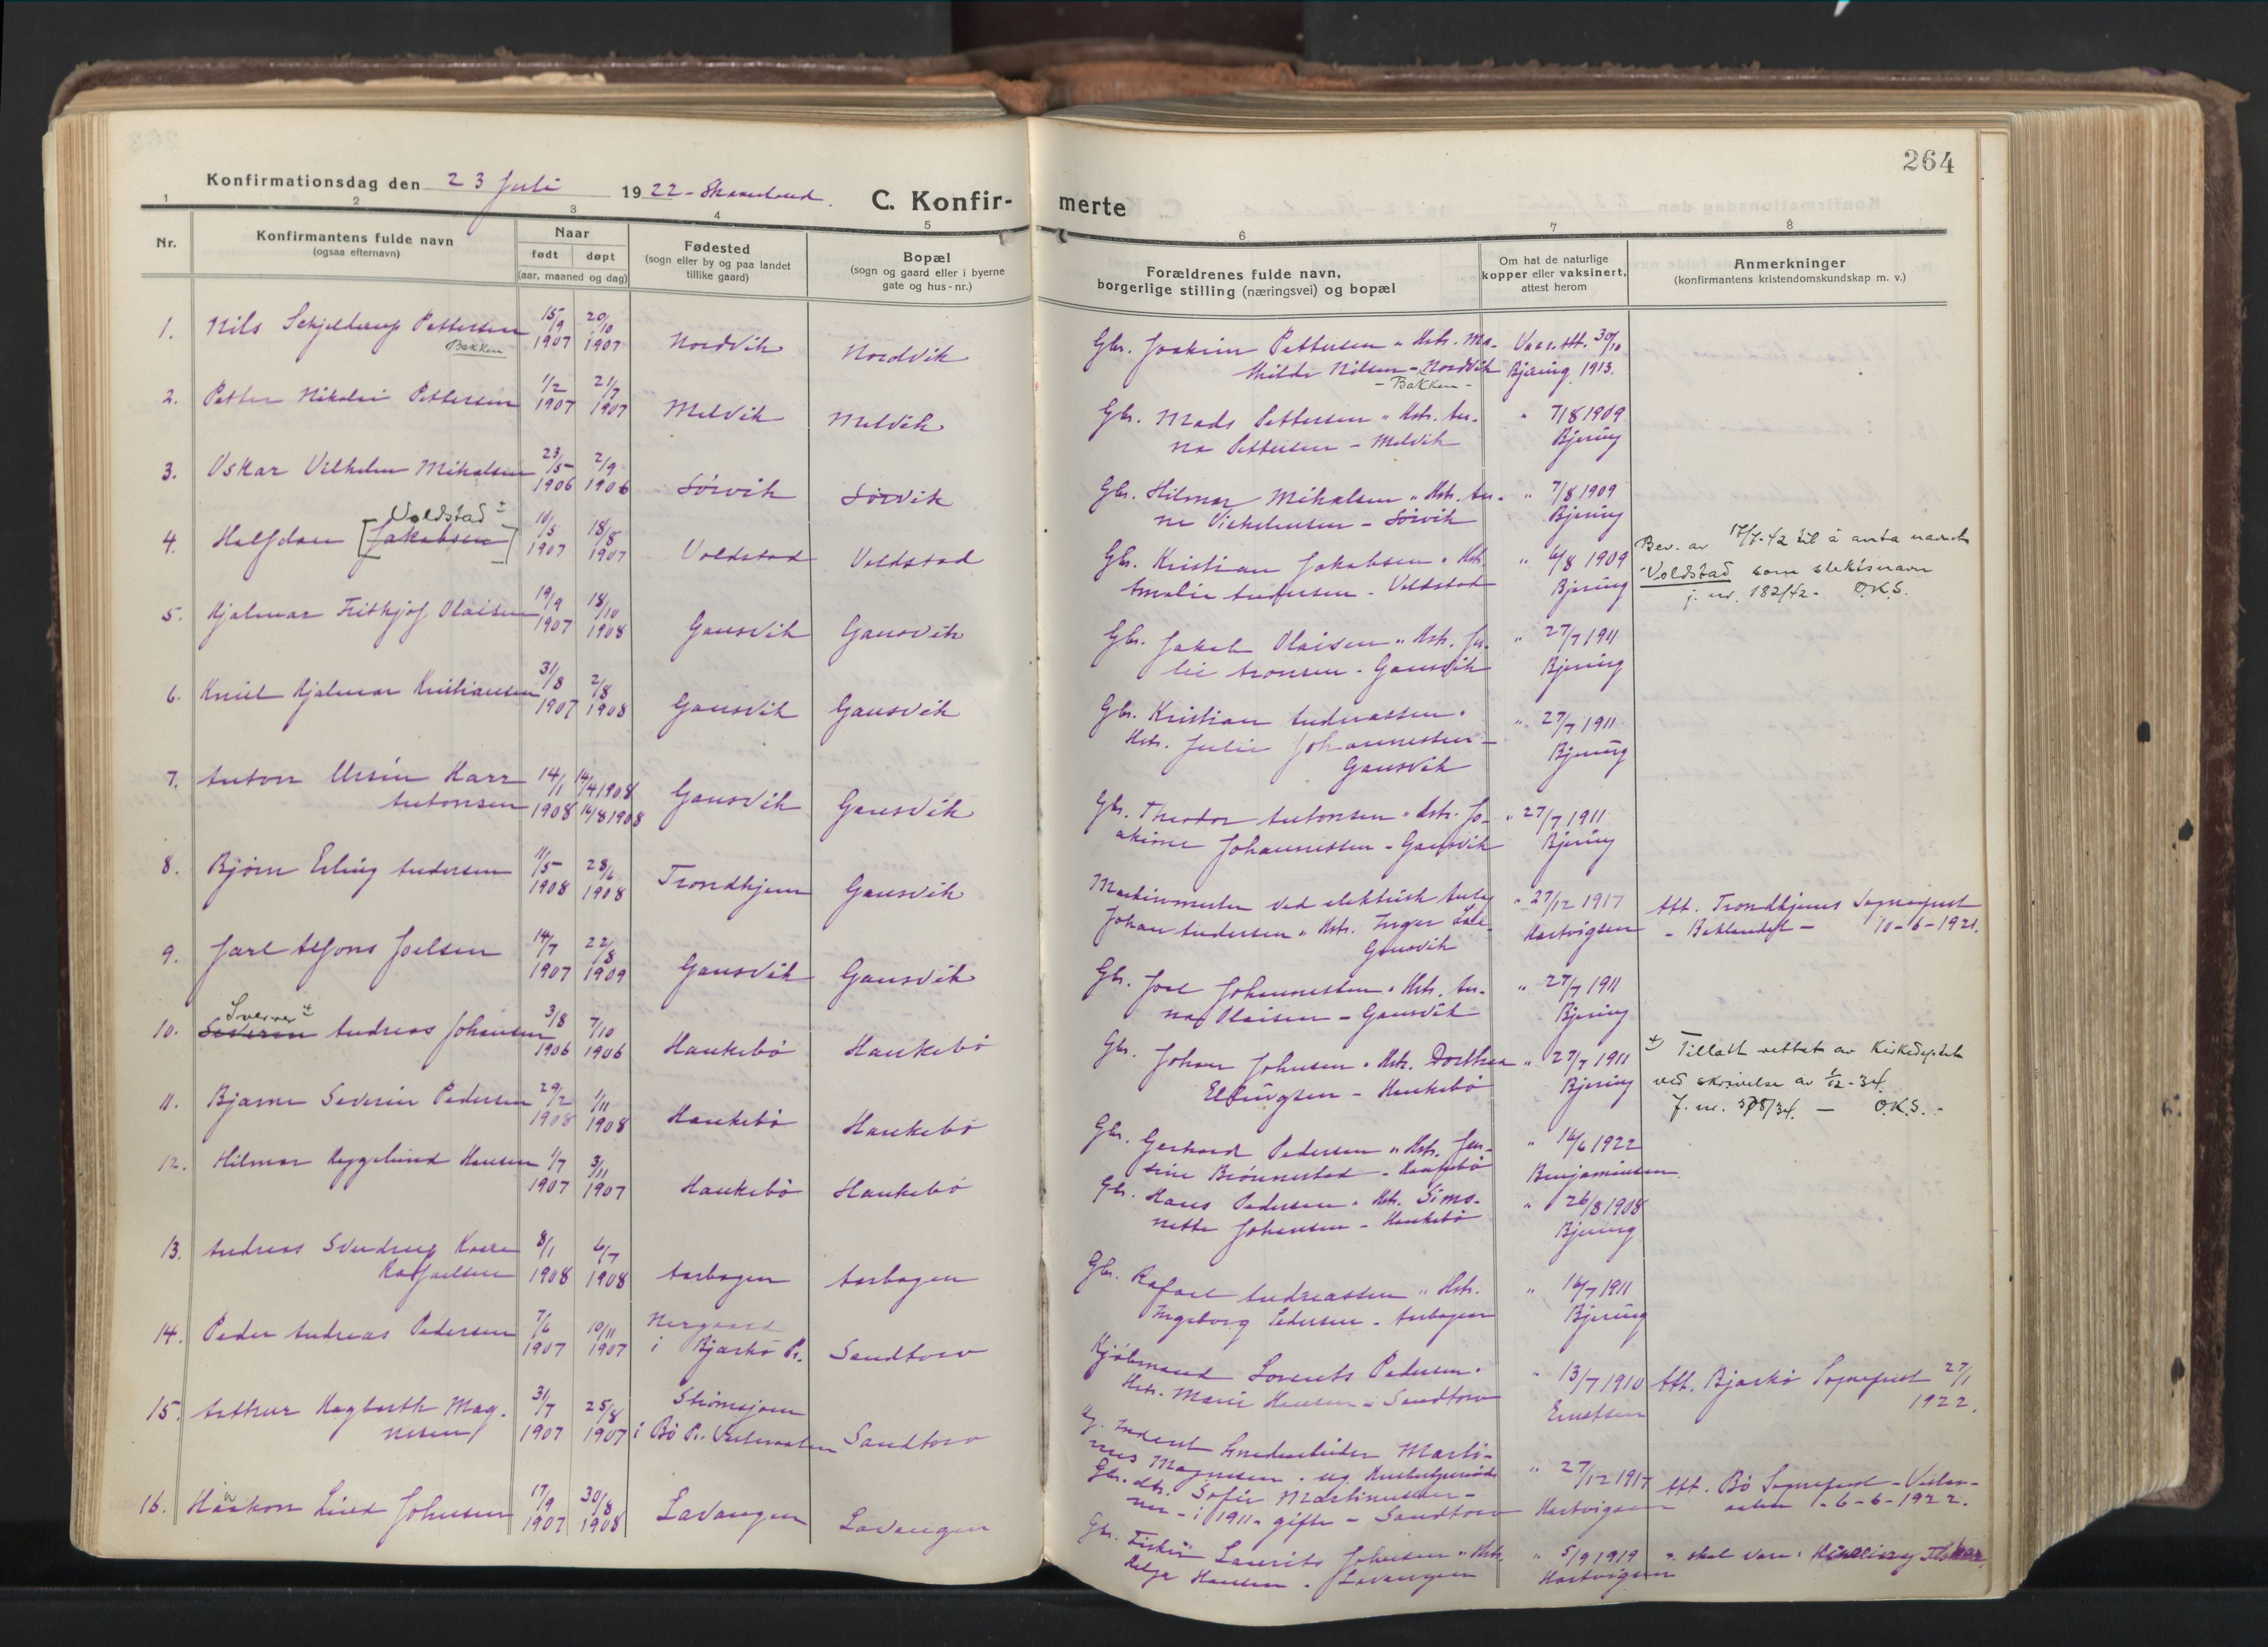 264
Konfirmationsdag den 23 Juli 1922 - Skaanland.
C. Konfir-
merte
1 2 3 4 5 6 7 8
Nr.
Konfirmantens fulde navn
(ogsaa efternavn)
Naar
født døpt
(aar, maaned og dag)
Fødested
(sogn eller by og paa landet
tillike gaard)
Bopæl
(sogn og gaard eller i byerne
gate og hus-nr.)
Forældrenes fulde navn,
borgerlige stilling (næringsvei) og bopæl
Om hat de naturlige
kopper eller vaksinert,
attest herom
Anmerkninger
(konfirmantens kristendomskundskap m. v.)
1. Nils Schjelderup Pettersen 15/9 1907 20/10 1907 Nordvik Nordvik
Bakken
Gbr. Joakim Pettersen " Hstr. Ma- Vacc. att. 30/10
thilde Nilsen - Nordvik Bjering 1913.
- Bakken -
2. Petter Nikolai Pettersen 1/2 1907 21/7 1907 Melvik Melvik
Gbr. Mads Pettersen " Hstr. An- " 7/8 1909
na Pettersen - Melvik Bjering
3. Oskar Vilhelm Mikalsen 23/5 1906 2/9 1906 Sørvik Sørvik
Gbr. Hilmar Mikalsen " Hstr. An- " 7/8 1909
ne Vilhelmsen - Sørvik Bjering
Voldstad ±
4. Halfdan [Jakobsen] 10/5 1907 18/8 1907 Voldstad Voldstad
Gbr. Kristian Jakobsen " Hstr. " 6/8 1909
Amalie Andersen - Voldstad Bjering
Bev. av 17/7-42 til å anta navnet
Voldstad som slektsnavn
j. nr. 182/42 - O.K.S.
5. Hjalmar Fritkjof Olaisen 19/9 1907 18/10 1908 Gausvik Gausvik
Gbr. Jakob Olaisen " Hstr. Ju- " 27/7 1911
lie Aronsen - Gausvik Bjering
6. Emil Hjalmar Kristiansen 31/8 1907 2/8 1908 Gausvik Gausvik
Gbr. Kristian Andreassen " " 27/7 1911
Hstr. Julie Johannessen - Bjering
Gausvik
7. Anton Ursin Karr 14/1 1908 14/4 1908 Gausvik Gausvik
Antonsen 16/8 1908
Gbr. Theodor Antonsen " Hstr. Jo- " 27/7 1911
akime Johannessen - Gausvik Bjering
8. Bjørn Erling Andersen 11/5 1908 28/6 1908 Trondhjem Gausvik
Maskinmester ved elektrisk anleg " 27/12 1917
Johan Andersen " Hstr. Inger Hartvigsen
Gausvik
Att. Trondhjems Sogneprest
- Baklandet - 10-6-1921.
9. Jarl Alfons Joelsen 14/7 1907 22/8 1909 Gausvik Gausvik
Gbr. Joel Johannessen " Hstr. An- " 27/7 1911
na Olaisen - Gausvik Bjering
Sverre ±
10. Severin Andreas Johansen 3/8 1906 7/10 1906 Haukebø Haukebø
Gbr. Johan Johnsen " Hstr. Dorthea " 27/7 1911
Ellingsen - Haukebø Bjering
± Tillatt rettet av Kirkedeptet
ved skrivelse av 1/12-34.
J. nr. 308/34. - O.K.S. -
11. Bjarne Severin Pedersen 29/2 1908 1/11 1908 Haukebø Haukebø
Gbr. Gerhard Pedersen " Hstr. Jen- " 16/6 1922
sine Brønnestad - Haukebø Benjaminsen
12. Hilmar Hansen 1/7 1907 3/11 1907 Haukebø Haukebø
Gbr. Hans Pedersen " Hstr. Simo- " 26/8 1908
nette Johansen - Haukebø Bjering
13. Andreas Svendrup Kaare 8/1 1908 6/7 1908 Aarbogen Aarbogen
Rafaelsen
Gbr. Rafael Andreassen " Hstr. " 16/7 1911
Ingeborg Pedersen - Aarbogen Bjering
14. Peder Andreas Pedersen 7/6 1907 10/11 1907 Nergaard Sandtorv
i Bjarkø Pr.
Kjøbmand Lorents Pedersen " " 13/7 1910
Hstr. Marie Hansen - Sandtorv Ernstsen
Att. Bjarkø Sogneprest 27/1
1922.
15. Arthur Hagbarth Mag- 31/7 1907 25/8 1907 Sandtorv
nesen i Bø Pr. Vesteraalen
Marti-
nus Magnesen " 27/12 1917
Sofie Martinussen - Hartvigsen
- i 1911 - gifte - Sandtorv
Att. Bø Sogneprest - Vester-
aalen - 6-6-1922.
16. Haakon Lind Johnsen 17/9 1907 30/8 1908 Lavangen Lavangen
Gbr. Fisker Laurits Johnsen " Hstr. " 5/9 1919
Helga Hansen - Lavangen Hartvigsen
". skal være: